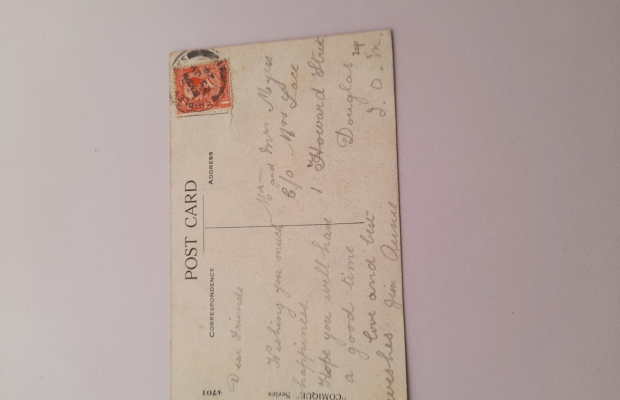 POST CARD
CORRESPONDENCE
ADDRESS
Dear Friends
Wishing you much
happiness.
Hope you will have
a good time
love and best
wishes Jim Annie
Mr and Mrs Myers
C/o Mrs Lace
1 Howard Street
Douglas
I.O.M.
4701
"COMIQUE" Series